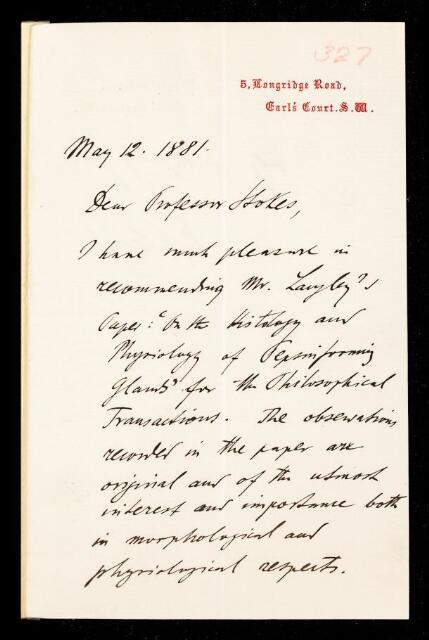 327
5, Longridge Road,
Earl's Court. S. W.
May 12. 1881.
Dear Professor Stokes,
I have much pleasure in
recommending Mr. Langley's
Paper: "On the Histology and
Physiology of Pepsinforming
Glands" for the Philosophical
Transactions. The observations
recorded in the paper are
original and of the utmost
interest and importance both
in morphological and
physiological respects.